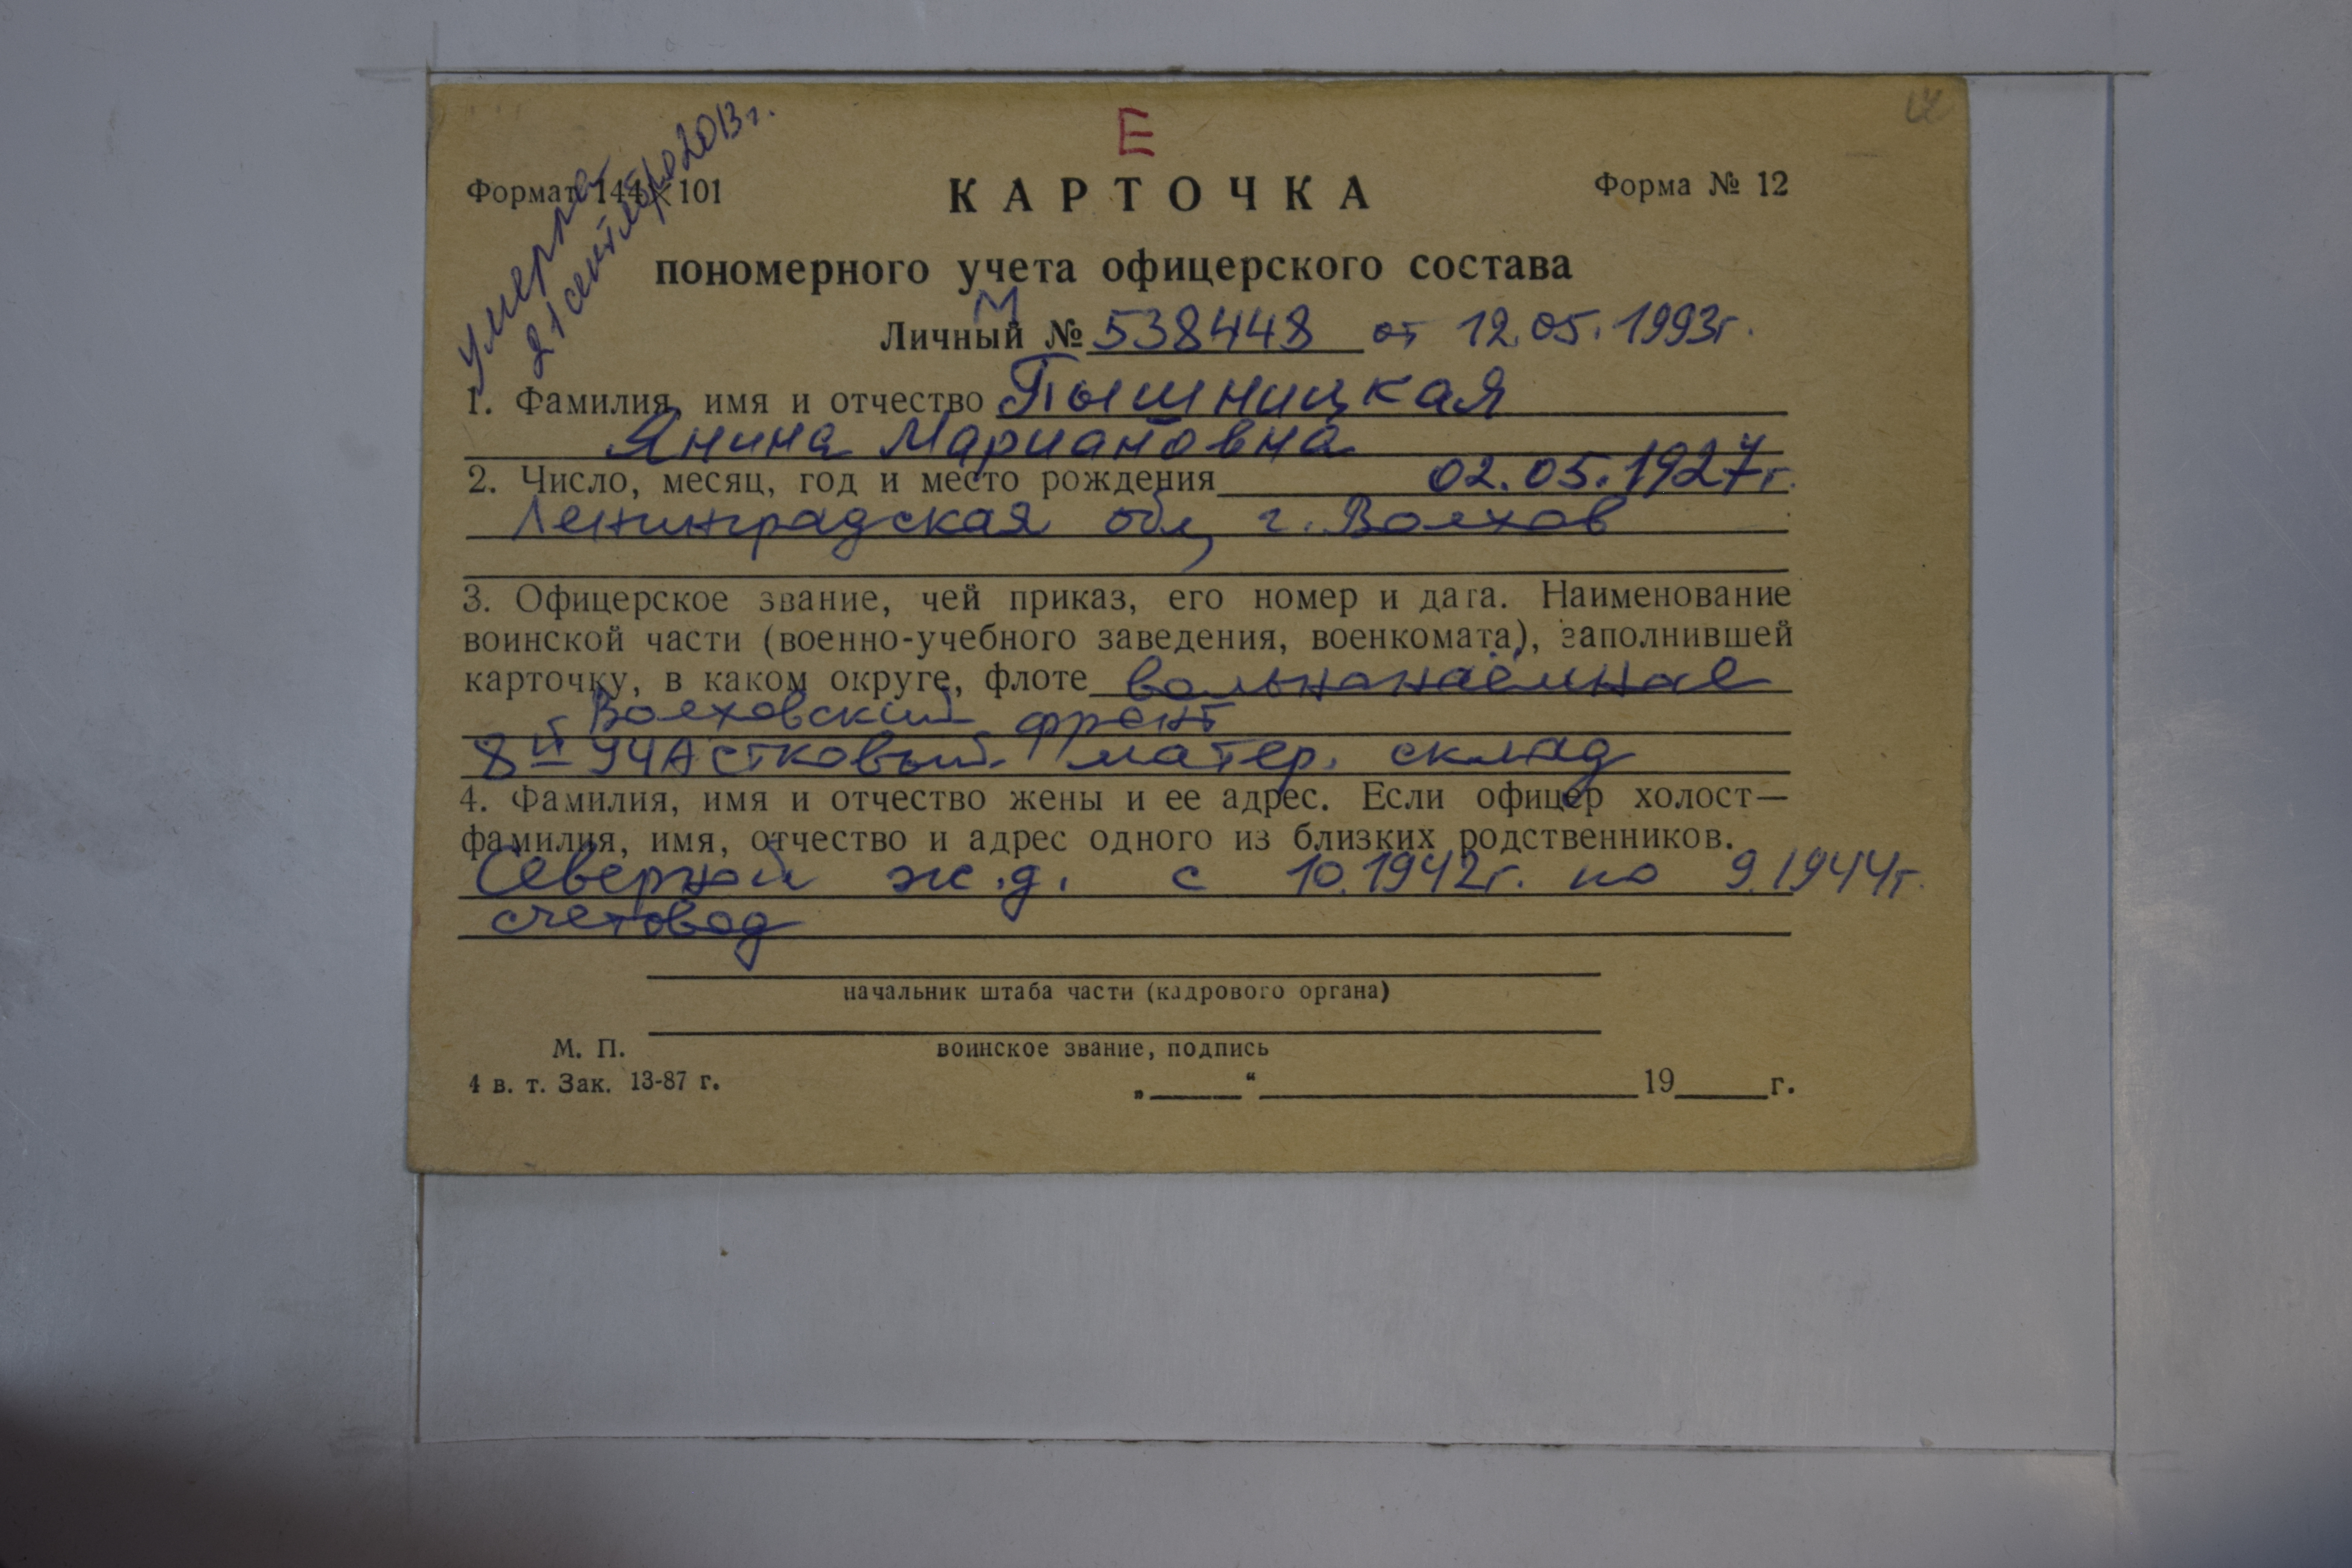 Е
умерла
21 сентября 2013 г.
Формат 144×101
КАРТОЧКА
Форма № 12
пономерного учета офицерского состава
М
Личный № 538448 от 12.05.1993г.
1. Фамилия, имя и отчество Пышницкая
Янина Мариановна
2. Число, месяц, год и место рождения 02.05.1927г.
Ленинградская обл, г. Волхов
3. Офицерское звание, чей приказ, его номер и дата. Наименование
воинской части (военно-учебного заведения, военкомата), заполнившей
карточку, в каком округе, флоте вольнонаёмная
Волховский фронт
8й участковый матер. склад
4. Фамилия, имя и отчество жены и ее адрес. Если офицер холост—
фамилия, имя, отчество и адрес одного из близких родственников.
Северной ж.д. с 10.1942г. по 9.1944г.
счетовод
начальник штаба части (кадрового органа)
М. П.
воинское звание, подпись
4 в. т. Зак. 13-87 г.
„ “ 19 г.